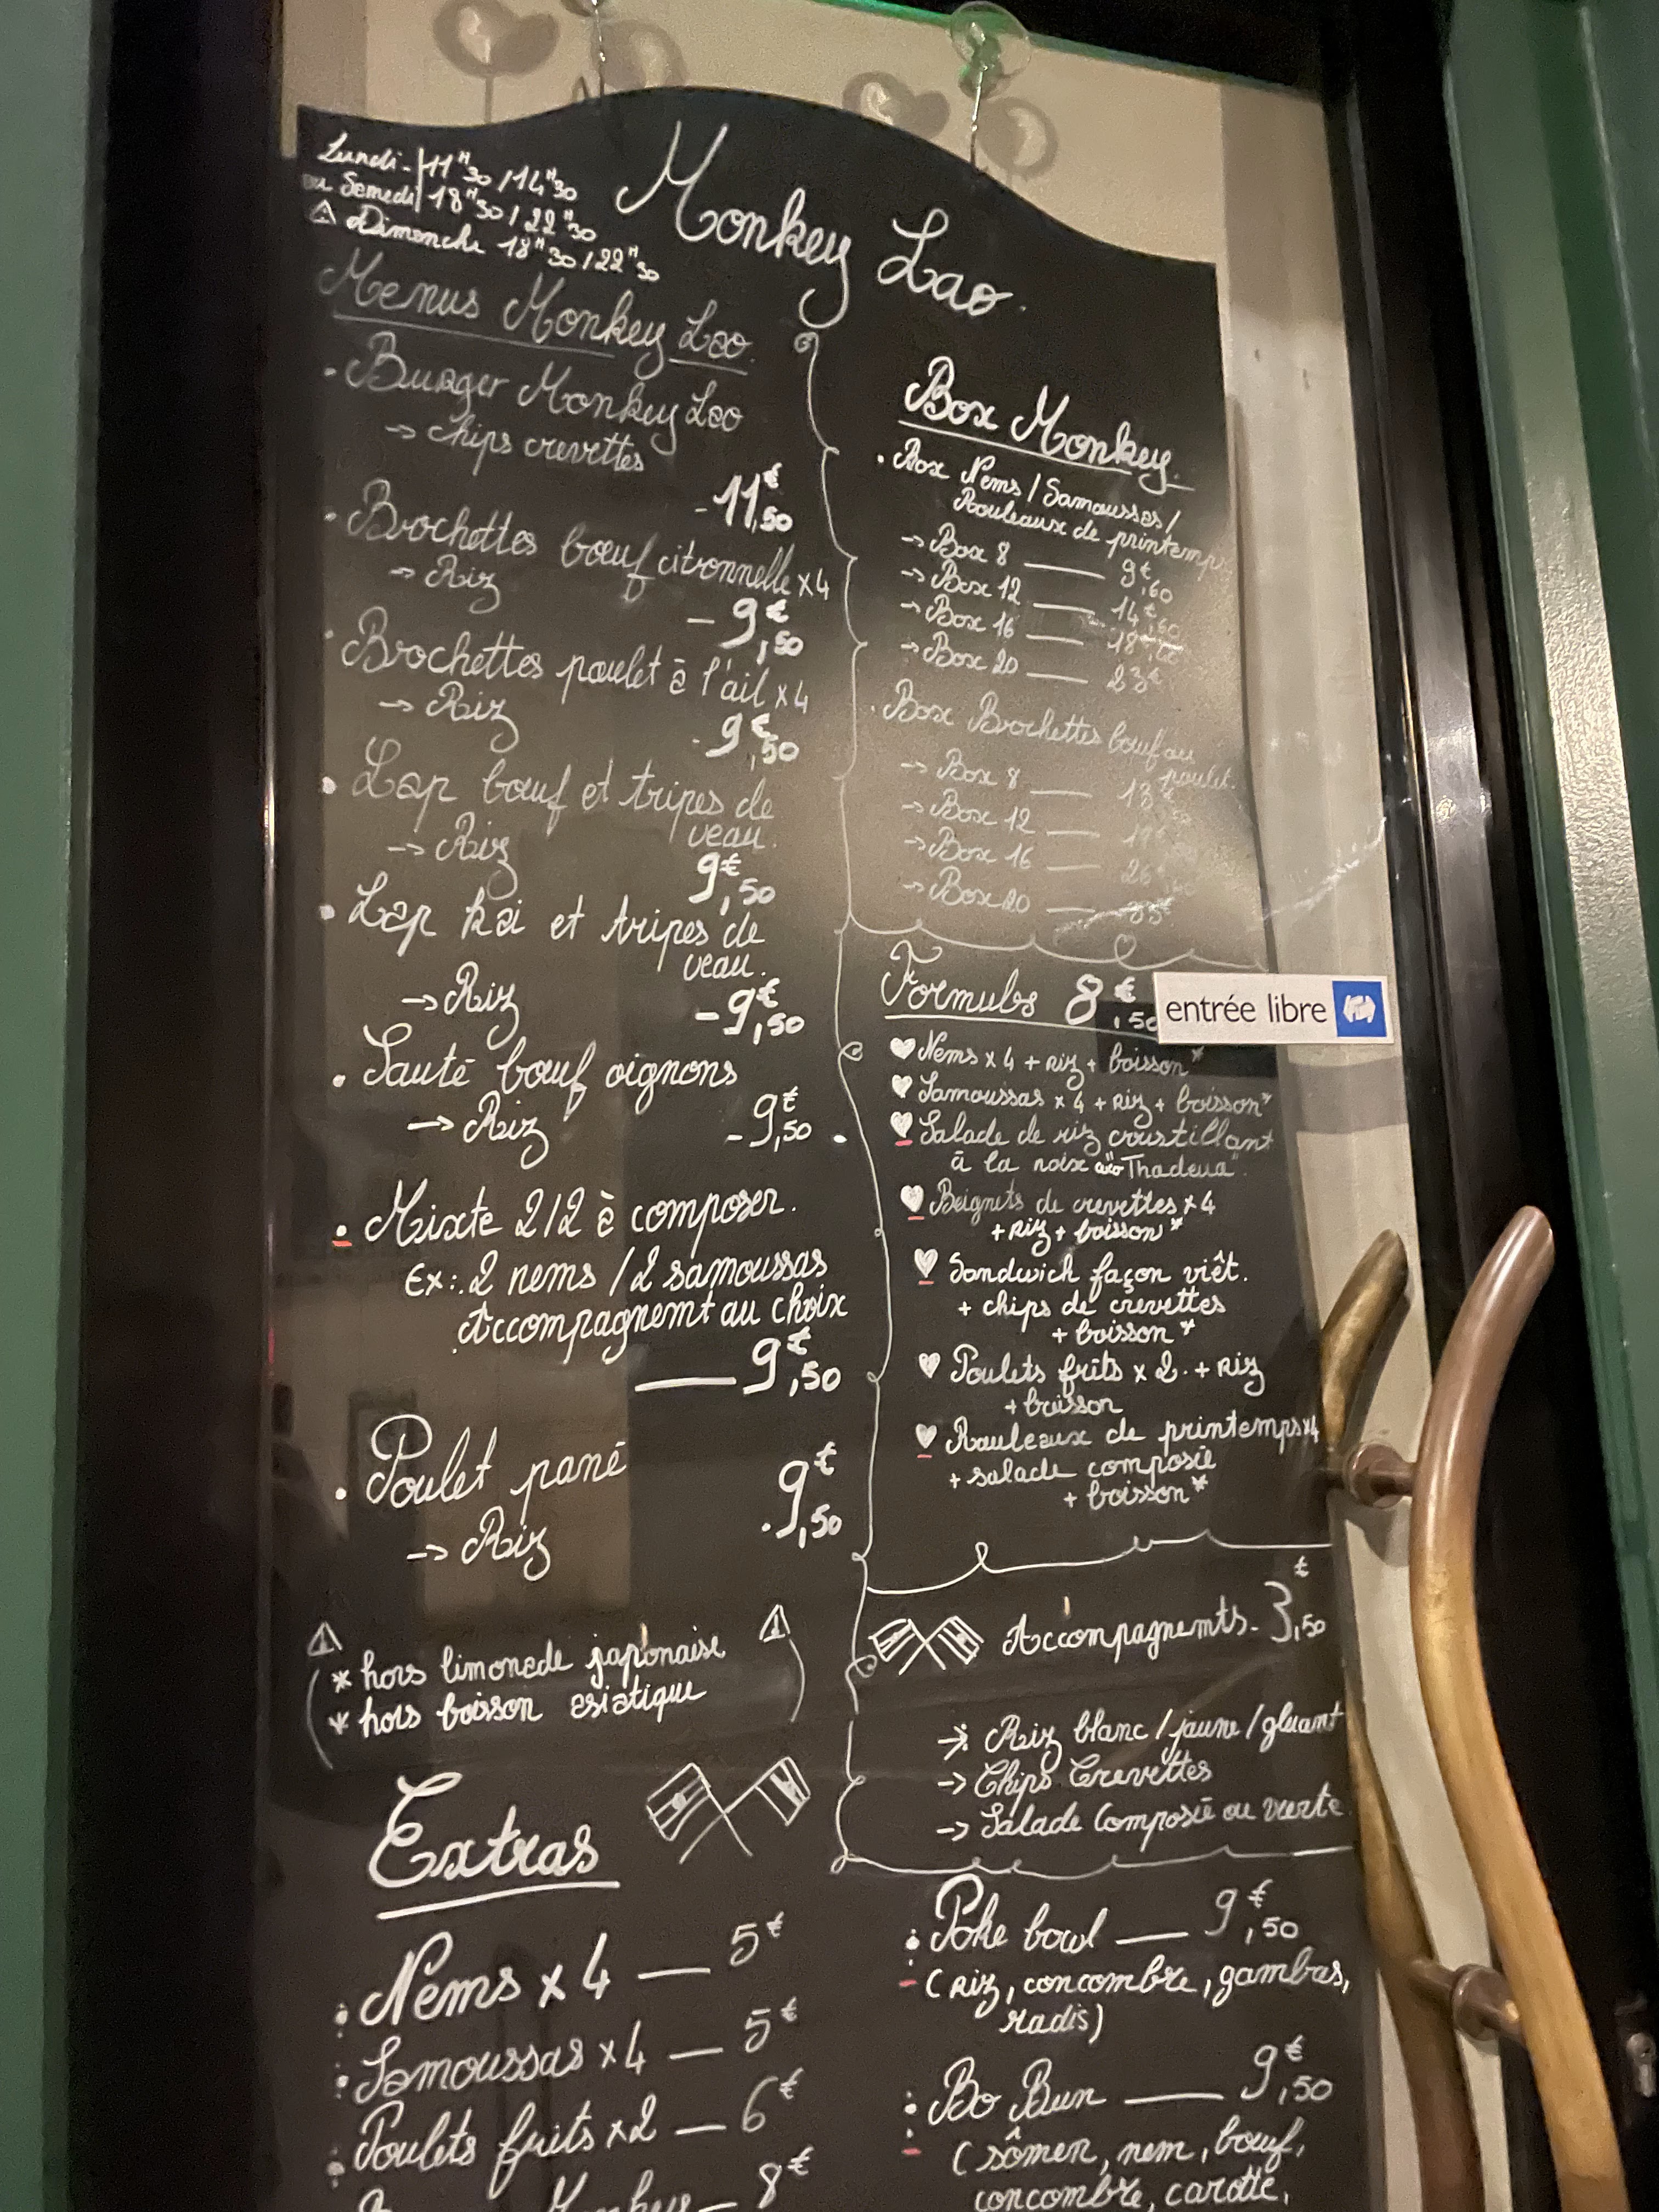 Monkey Lao.
Lundi - 11H30 / 14H30
au Samedi 18H30 / 22H30
⚠ Dimanche 18H30 / 22H30
Menus Monkey Lao.
. Burger Monkey Lao
→ chips crevettes
- 11€,50
. Brochettes bœuf citronnelle x4
→ Riz
- 9€,50
. Brochettes poulet à l'ail x4
→ Riz
- 9€,50
. Lap bœuf et tripes de
veau.
→ Riz
9€,50
. Lap kai et tripes de
veau.
→ Riz
- 9€,50
. Sauté bœuf oignons
→ Riz
- 9€,50
. Mixte 2/2 à composer.
Ex: 2 nems / 2 samoussas
Accompagnemt au choix
— 9€,50
. Poulet pané
→ Riz
. 9€,50
⚠ ⚠
* hors limonade japonaise
* hors boisson asiatique
Extras
: Nems x 4 — 5€
: Samoussas x4 — 5€
: Poulets frits x2 — 6€
— 8€
Box Monkey.
. Box Nems / Samoussas /
Rouleaux de printemps
→ Box 8 — 9€,60
→ Box 12 — 14€,60
→ Box 16 — 18
→ Box 20 — 23€
. Box Brochettes bœuf ou
poulet.
→ Box 8 — 13€
→ Box 12 —
→ Box 16 — 26€
→ Box 20 —
Formules 8€,50
entrée libre
♥ Nems x 4 + riz + boisson*
♥ Samoussas x 4 + riz + boisson*
♥ Salade de riz croustillant
à la noix "Thadeua".
♥ Beignets de crevettes x4
+ riz + boisson*
♥ Sandwich façon viêt.
+ chips de crevettes
+ boisson*
♥ Poulets frits x 2. + riz
+ boisson
♥ Rouleaux de printemps x4
+ salade composée
+ boisson*
Accompagnemts. 3€,50
→ Riz blanc / jaune / gluant
→ Chips Crevettes
→ Salade Composée ou verte.
: Poke bowl — 9€,50
(riz, concombre, gambas,
radis)
: Bo Bun — 9€,50
(sômen, nem, bœuf,
concombre, carotte,